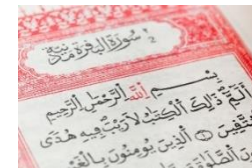 سُورَةُ الْبَقَرَةِ مَدَنِيَّةٌ
بِسْمِ اللَّهِ الرَّحْمَٰنِ الرَّحِيمِ
الٓمٓ ذَٰلِكَ الْكِتَابُ لَا رَيْبَ فِيهِ هُدًى
لِلْمُتَّقِينَ الَّذِينَ يُؤْمِنُونَ بِالْغَيْبِ